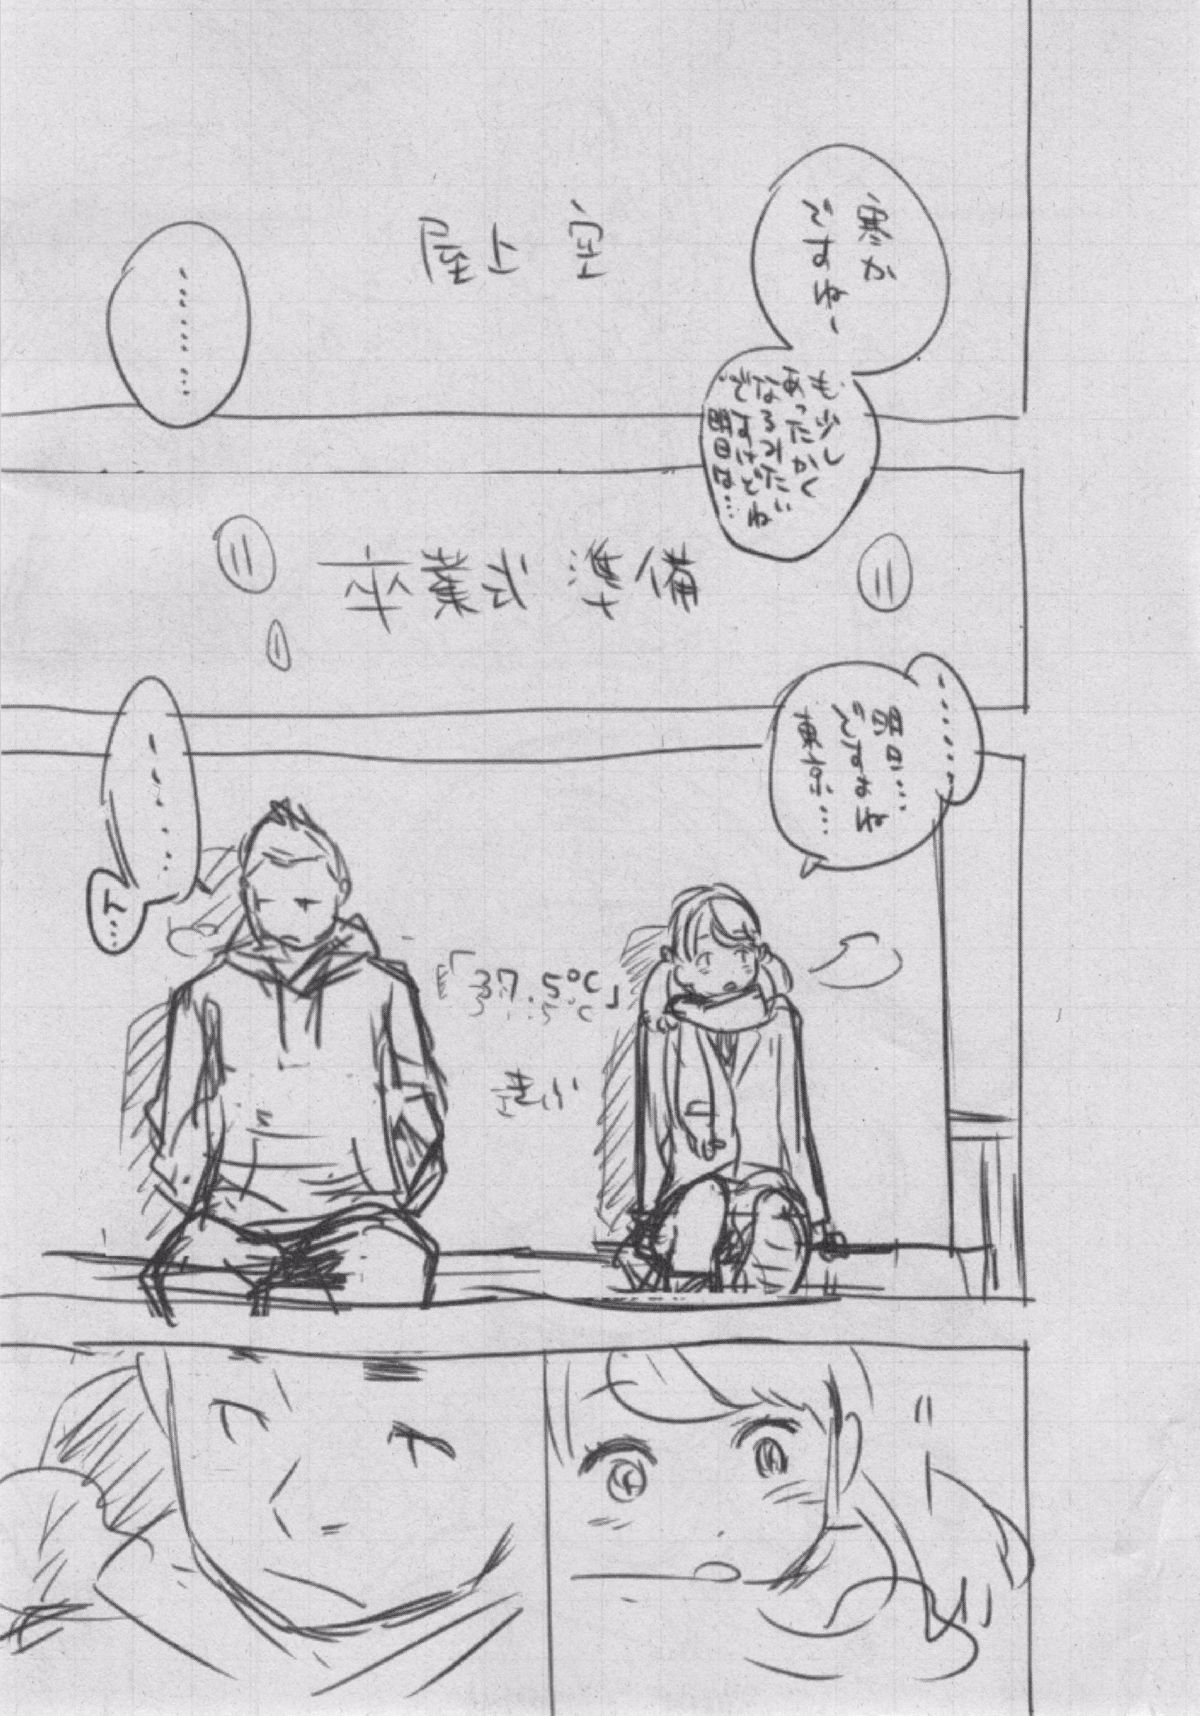 寒か
ですねー
も少し
あったかく
なるみたい
ですけどね
明日は…
屋上 空
………
卒業式 準備
………
明日…
ですよね
東京…
………
ん…
「37.5℃」